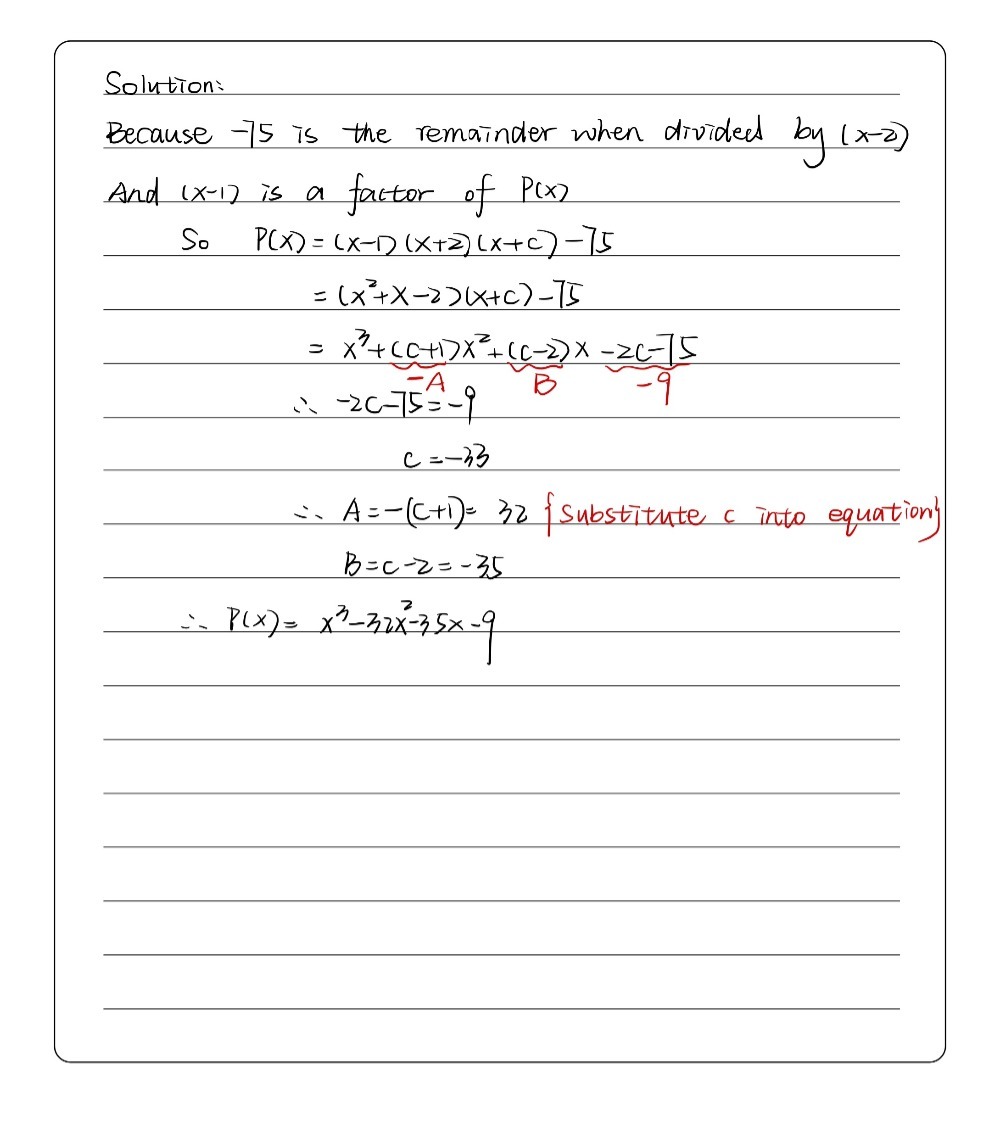 Solution:
Because -75 is the remainder when divided by (x-2)
And (x-1) is a factor of P(x)
So P(x) = (x-1)(x+2)(x+c)-75
= (x²+x-2)(x+c)-75
= x³+(c+1)x²+(c-2)x -2c-75
-A B -9
∴ -2c-75=-9
c=-33
∴ A=-(c+1)= 32 {substitute c into equation}
B=c-2=-35
∴ P(x)= x³-32x²-35x-9